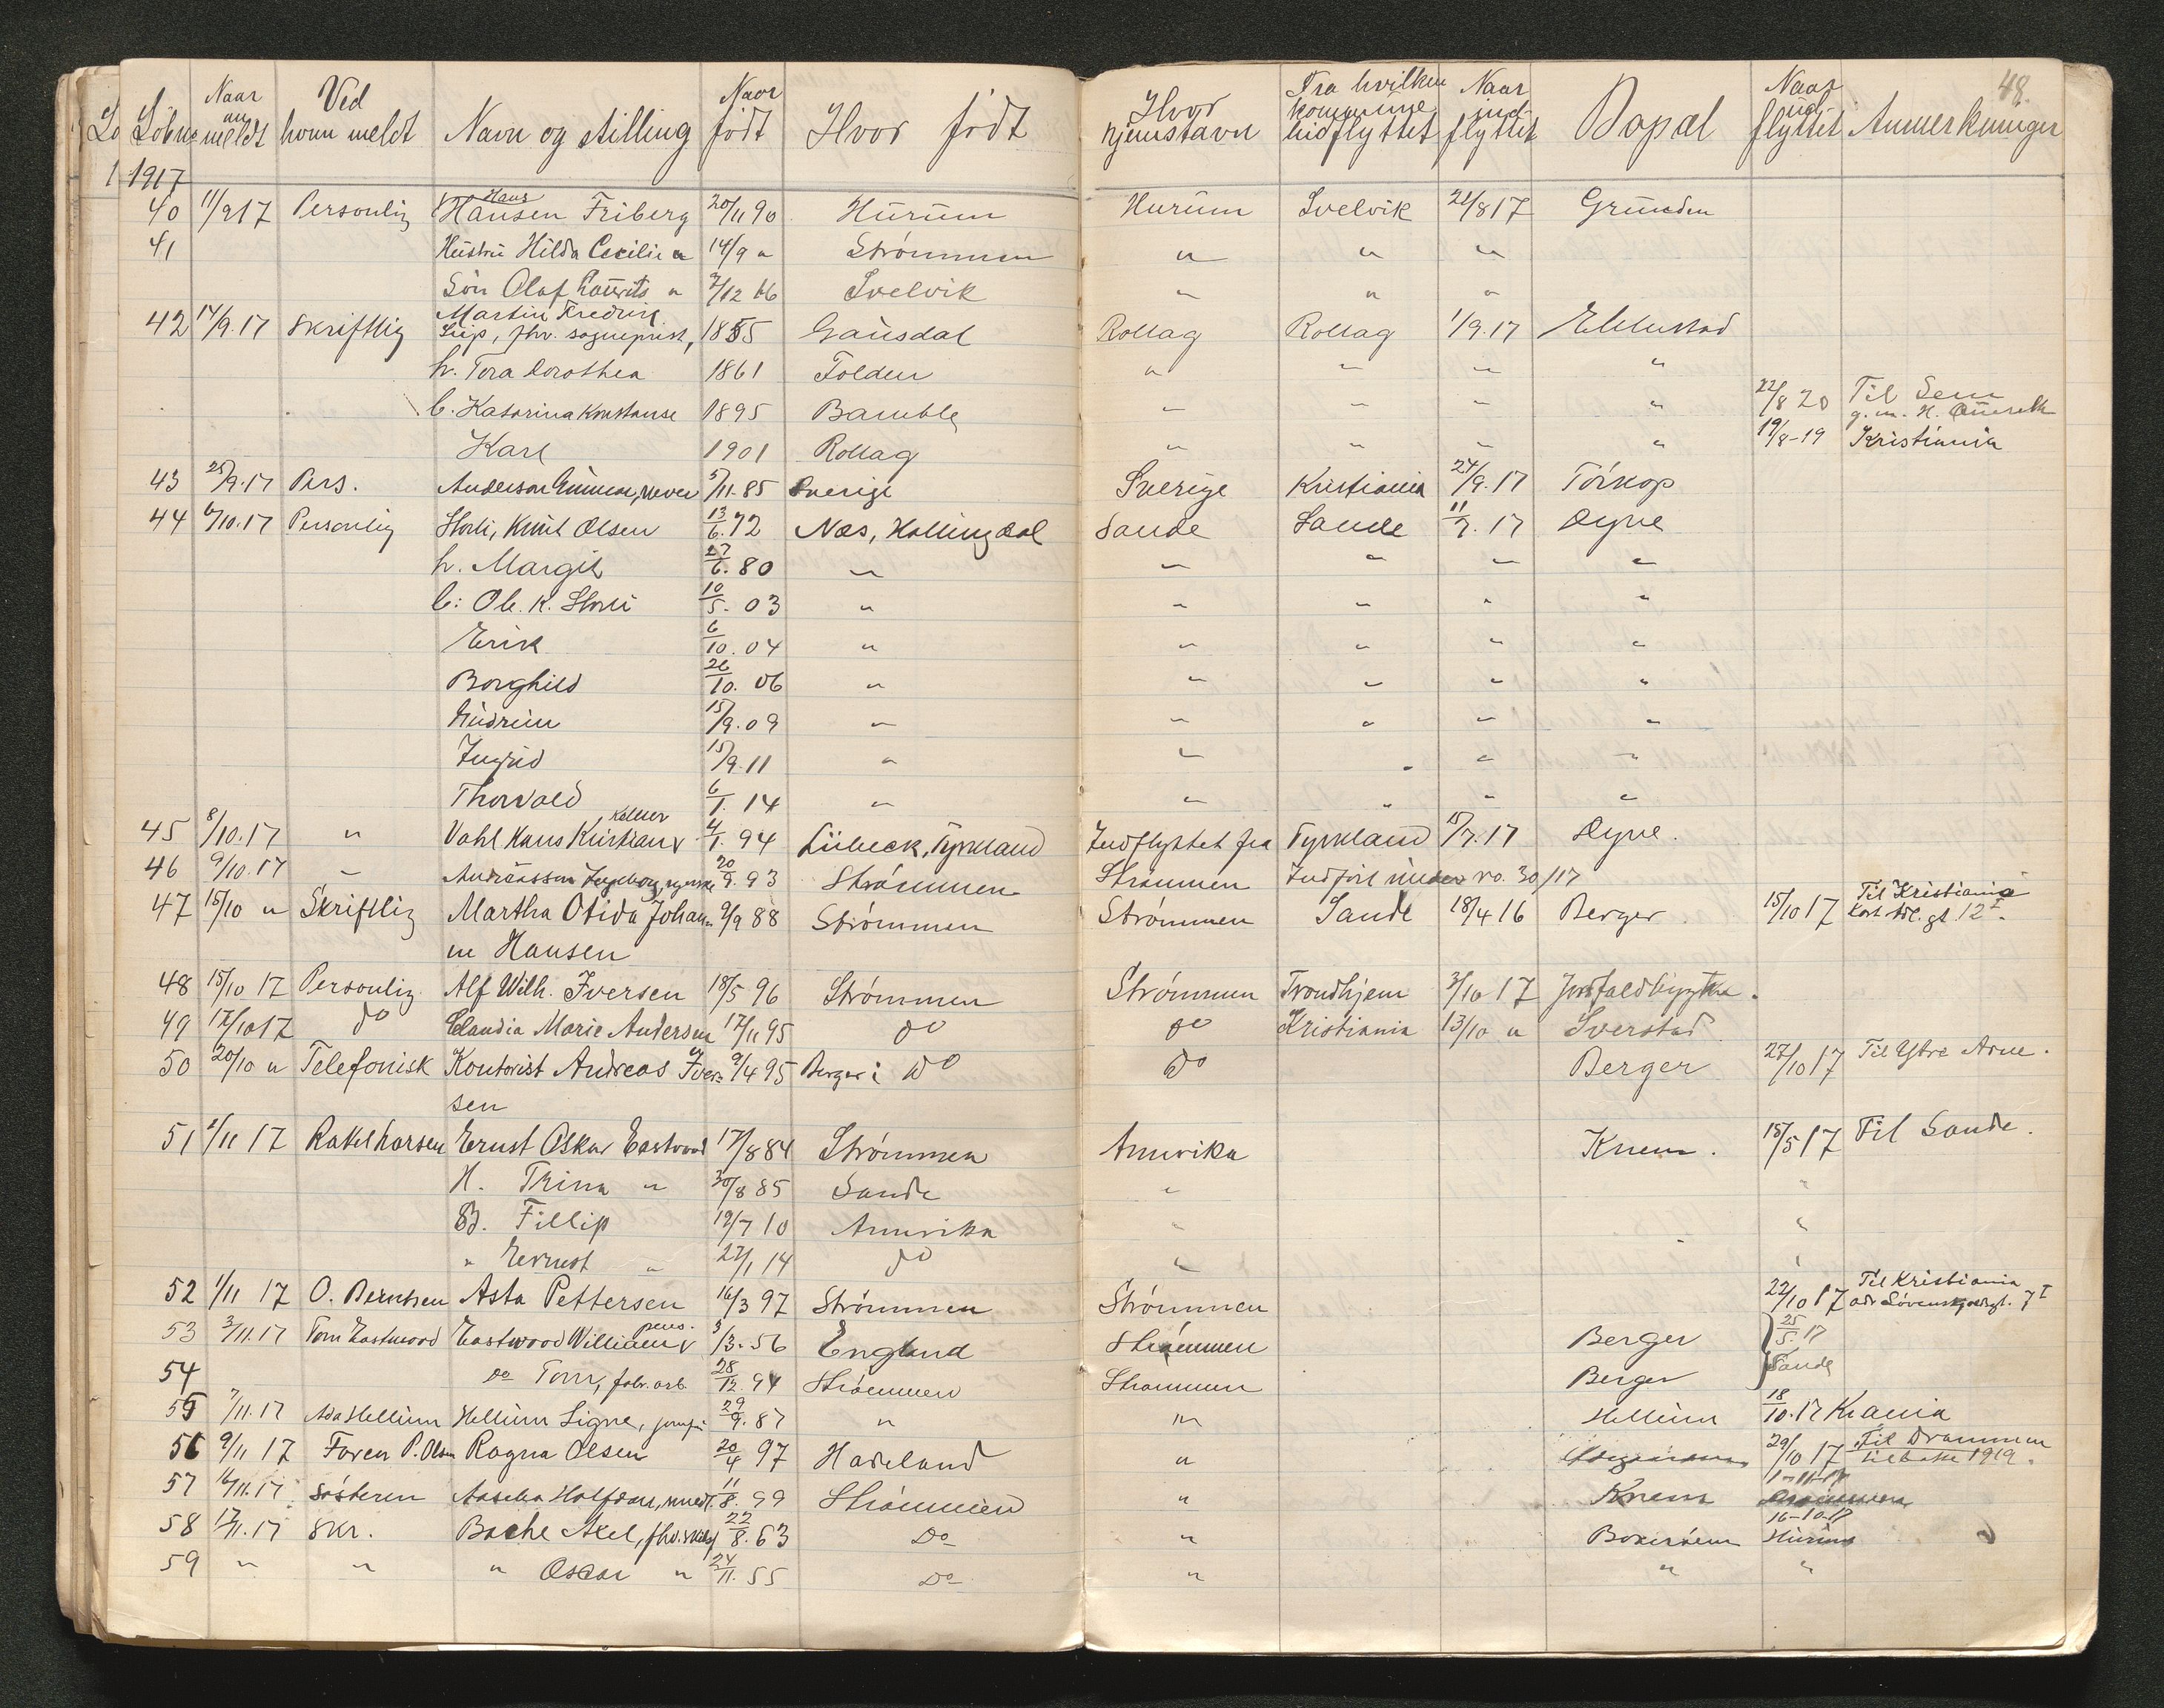 48.
Løbn. Naar anmeldt Ved hvem meldt Navn og stilling Naar født Hvor født Hvor hjemstavn Fra hvilken kommune indflyttet Naar indflyttet Bopæl Naar udflyttet Anmerkninger
1917
40 11/9 17 Personlig Hansen Hans Friberg 20/11 90 Hurum Hurum Svelvik 21/8 17 Grunden
41 Hustru Hilda Cecilie " 14/9 " Strømmen " " "
Søn Olaf Laurits " 7/12 16 Svelvik " " "
Martin Fredrik
42 14/9.17 Skriftlig fhv. sogneprest, 1855 Gausdal Rollag Rollag 1/9.17
h. Tora Dorothea 1861 Folden " " " "
b. Katarina Konstanse 1895 Bamble " " " " 22/8 20 Til Sem
g. m. H.
Karl 1901 Rollag " " " " 19/8-19 Kristiania
43 25/9.17 Pers. Anderson 5/11.85 Sverige Sverige Kristiania 24/9.17 Tørkop
44 6/10.17 Personlig Storli, Knut Olsen 13/6.72 Næs, Hallingdal Sande Sande 11/7.17 Dyne
h. Margit 27/6.80 " " " " "
b: Ole. K. Storli 10/5.03 " " " " "
Erik 6/10.04 " " " " "
Borghild 26/10.06 " " " " "
Gudrun 15/9.09 " " " " "
Ingrid 15/9.11 " " " " "
Thorvald 6/1.14 " " " " "
45 8/10.17 " Vahl Hans Kristian v Kelner 4/1.94 Lübeck, Tyskland Indflyttet fra Tyskland 15/7.17 Dyne.
46 9/10.17 " Andreassen Ingeborg, 20/9.93 Strømmen Strømmen Indført under no. 30/17
47 15/10 " Skriftlig Martha Otida Johan- 9/9 88 Strømmen Strømmen Sande 18/4 16 Berger 15/10 17 Til Kristiania
ne Hansen
48 15/10 17 Personlig Alf Wilh. Iversen 18/5 96 Strømmen Strømmen Trondhjem 3/10 17
49 17/10 17 do Claudia Marie Andersen 17/11 95 do do Kristiania 13/10 " Sverstad
50 20/10 " Telefonisk Kontorist Andreas Iver- 9/4 95 Berger i do do Berger 27/10 17 Til Ytre Arne.
sen
51 1/11 17 Rakel Larsen Ernst Oskar Eastwood 17/8 84 Strømmen Amerika Knem. 15/5 17 Til Sande.
H. Trina " 30/8 85 Sande " "
B. Fillip 19/7 10 Amerika " "
" Ernst " 27/1 14 do " "
52 1/11 17 O. Berntsen Asta Pettersen 16/3 97 Strømmen Strømmen 22/10 17 Til Kristiania
53 3/11.17 Tom Eastwood Eastwood William v pens. 3/3.56 England Strømmen Berger 25/5.17
54 do Tom, fabr.arb. 28/12.94 Strømmen Strømmen Berger Sande
55 7/11.17 Ada Hellum Hellum Signe, 29/9.87 " " Hellum 18/10.17 Krania
56 9/11 17 Faren P. Olsen Ragna Olsen 20/4 97 Hadeland " 29/10 17 Til Drammen
tilbake 1919.
57 16/11.17 Søsteren Halfdan, 11/8.99 Strømmen " Knem
16-10-17
58 17/11.17 Skr. Bache Axel, 22/8.63 Do " Hurum
59 " " " Oscar " 24/11.55 Do " " "